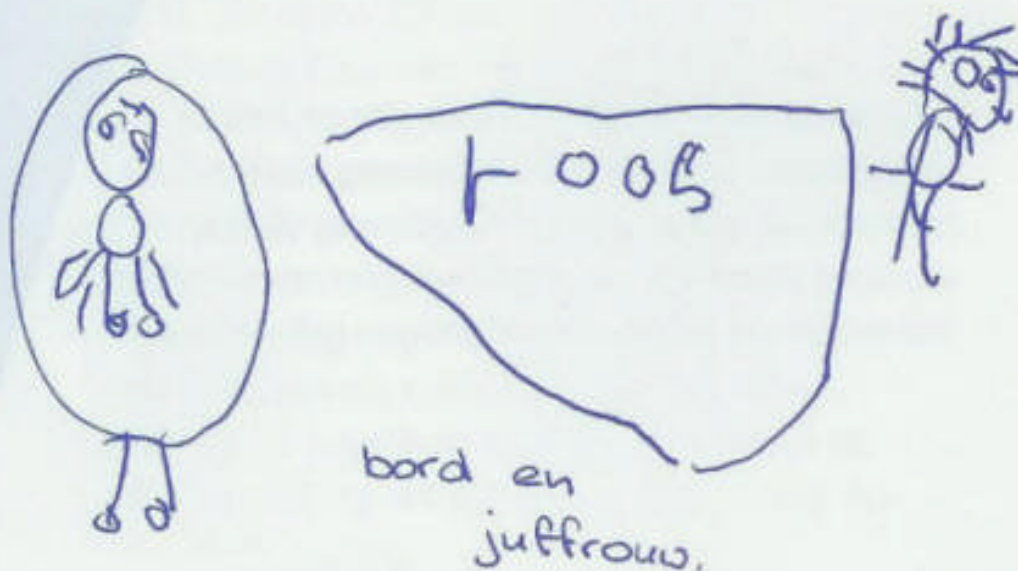 roos
bord en
juffrouw.